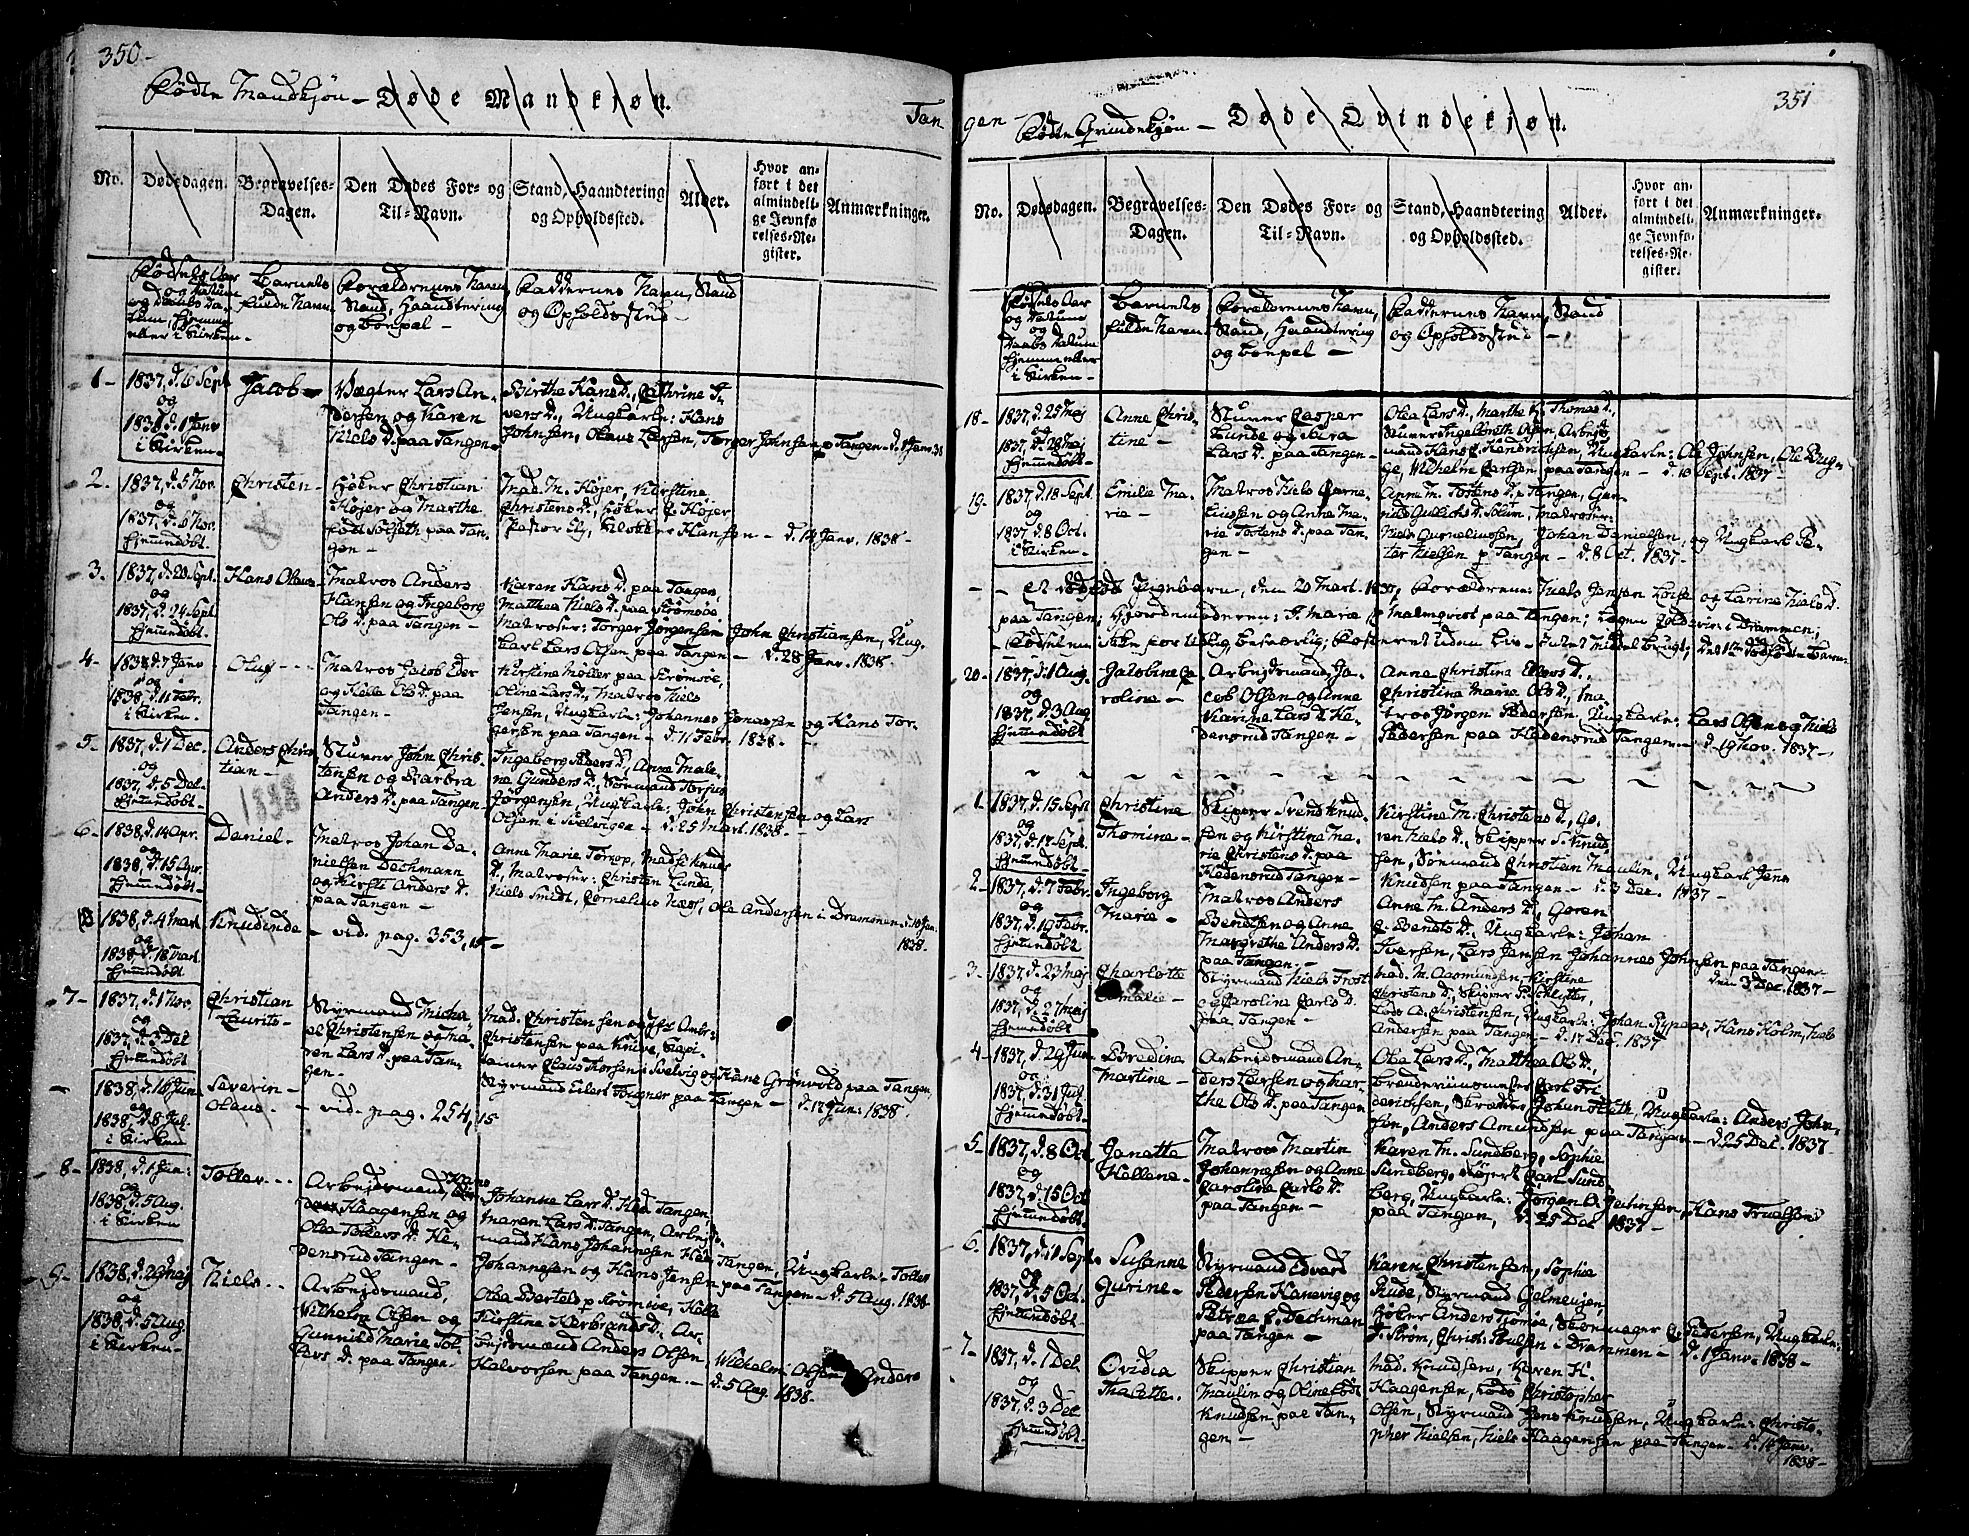 350-
Fødte Mandkjøn - Døde Mandkjøn.
Tan
No.
Dødsdagen.
Begravelses-Dagen.
Den Dødes For- og Til-Navn.
Stand, Haandtering og Opholdssted.
Alder.
Hvor anført i det almindelige Jevnførelses-Register.
Anmærkninger.
Fødsels Aar og Datum og Daabs Datum, hjemme eller i Kirken -
Barnets fulde Navn
Forældrenes Navn, Stand, Haandtering og Boepæl -
Faddernes Navn, Stand og Opholdssted -
1-
1837, d. 6 Sept
og
1838 d. 1 Janv
i Kirken -
Jacob -
Vægter Lars An-
dersen og Karen
Niels D. paa Tangen -
Birthe Hans d., Cathrine I-
vers d., Ungkarle: Hans
Johnsen, Olaus Larsen, Torger Johnsen p Tangen - d. 1 Janv. 38
2.
1837, d. 5 Nov.
og
1837, d. 6 Nov.
hjemmdøbt.
Christen -
Høker Christian
Højer og Marthe
født Solseth paa Tan-
gen -
Mad. M. Højer, Kirstine
Christens d., Høker J. Højer
Pastor Ely, Klokker Hansen - d. 14 Janv. 1838 -
3.
1837, d. 20 Sept.
og
1837, d. 24 Sept
hjemmdøbt.
Hans Olaus -
Matros Anders
Hansen og Ingeborg
Ols D. paa Tangen -
Karen Hans d. paa Tangen,
Matthea Niels d. paa Strømsøe
Matroser: Torger Jörgensen, John Christiansen, Ung-
karl Lars Olsen paa Tangen - d. 28 Janv. 1838
4-
1838 d. 7 Janv
og
1838, d. 11 Febr.
i Kirken -
Oluf - -
Matros Jacob Eder
og Helle Ols d. paa
Tangen -
Kirstine Möller paa Strømsøe,
Oline Lars d., Matros Niels
Jensen, Ungkarle: Johannes Jonassen og Hans Tor-
gersen paa Tangen - d. 11 Febr. 1838 -
5-
1837, d. 1 Dec.
og
1837, d. 5 Dec.
hjemmdøbt -
Anders Chris-
tian -
1838
Stuver John Chris-
tensen og Barbra
Anders D. paa Tangen -
Ingeborg Peders D., Anne Male-
ne Gunders d., Sømand Torjus
Jörgensen, Ungkarle: John Christensen og Lars
Olsen i Svelvigen - d. 25 Mart. 1838 -
6-
1838, d. 14 Apr.
og
1838, d. 15 Apr.
hjemmdøbt -
Daniel -
Matros Johan Da-
nielsen Dechmann
og Kirsti Anders D.
paa Tangen -
Anne Marie Torrop, Mads Knuds
d., Matroser: Christen Lunde,
Niels Smidt, Cornelius Næss, Ole Andersen i Drammen, d. 10 Jun:
1838.
1838, d. 4 Mart
og
1838, d. 18 Mart
hjemmdøbt
Knud
- vid. pag. 353, 15 -
7-
1837, d. 1 Nov.
og
1837, d. 3 Dec
hjemmdøbt
Christian
Laurits -
Styrmand Micha-
el Christensen og Ma-
ren Lars d. paa Tan-
gen -
Mad. Christensen og Jfr. Ambr-
Christensen paa Knive, Kapi-
tainer Claus Thorsen i Svelvig og Hans Grönvold paa Tangen,
Styrmand Eilert Wagner paa Tangen - d. 17 Jun: 1838 -
-
1838, d. 16 Jun:
og
1838, d. 8 Jul.
i Kirken
Severin
Olaus -
- vid. pag. 254, 15
8-
1838 d. 1 Jun:
og
1838, d. 5 Aug.
i Kirken
Tolle - -
Arbejdsmand, Hans
Haagensen og
Olea Tollers D. He-
densrud Tangen -
Johanne Lars d. Hed. Tangen,
Maren Lars d. Tangen, Arbejds-
mand Hans Johannesen Hed. Tangen, Ungkarle: Tolle
Johannesen og Hans Jensen paa Tangen - d. 5 Aug. 1838
9-
1838, d. 29 Maj
og
1838, d. 5 Aug.
i Kirken -
Niels - -
Arbejdsmand,
Wilhelm Olsen og
Gunnild Marie Tol-
lers D. paa Tangen -
Olea Bertels p Strømsøe, Helle
Kirstine Herbrands D., Ar-
bejdsmand Anders Olsen, Wilhelm Olsen, Anders
Halvorsen paa Tangen. - d. 5 Aug. 1838 -
351
gen - Fødte Qvindekjøn - Døde Qvindekjøn.
No.
Dødsdagen.
Begravelses-Dagen.
Den Dødes For- og Til-Navn.
Stand, Haandtering og Opholdssted.
Alder.
Hvor anført i det almindelige Jevnførelses-Register.
Anmærkninger.
Fødsels Aar og Datum og Daabs Datum hjemme eller i Kirken -
Barnets fulde Navn
Forældrenes Navn, Stand, Haandtering og Boepæl -
Faddernes Navn, Stand og Opholdssted -
18-
1837, d. 25 Maj
og
1837, d. 28 Maj
hjemmdøbt -
Anne Chris-
tine -
Stuver Casper
Lunde og Sara
Lars D. paa Tangen -
Olea Lars d., Marthe K. Thomas D.,
Stuver Ingebreth Olsen, Arbejds-
mand Hans C. Hendrichsen, Ungkarle: Ole Johnsen, Ole Byg-
ge, Wilhelm Carlsen paa Tangen - d. 10 Sept. 1837
19.
1837, d. 18 Sept
og
1837 d. 8 Oct.
i Kirken -
Emilie Ma-
rie -
Matros Niels Corne-
liussen og Anne Ma-
rie Tostens d. paa Tan-
gen -
Anne M. Tostens d. p Tangen, Gun-
nild Gullichs d. Solum, Matroser:
Niels Corneliussen, Johan Danielsen, og Ungkarl Pe-
ter Nielsen p Tangen - d. 8 Oct. 1837 -
- - et dødfødt Pigebarn, den 20 Mart. 1837, Forældrene: Niels Jensen Loise og Karine Niels D.
paa Tangen; Hjordemoderen: J. Marie Malmqvist paa Tangen; Lægen Holdevin i Drammen;
- Fødselen ikke før tidlig, besværlig; Fosteret uden Liv - Intet Middel brugt; det 1ste dødfødte Barn -
20-
1837, d. 1 Aug.
og
1837, d. 3 Aug
hjemmdøbt
Jacobine Ca-
roline -
Arbejdsmand, Ja-
cob Olsen og Anne
Karine Lars D. He-
densrud Tangen -
Anne Christine Ellers d.,
Christine Marie Ols d., Ma-
tros Jörgen Pedersen, Ungkarle: Lars Olsen og Niels
Pedersen paa Hedensrud Tangen - d. 19 Nov. 1837 -
1-
1837, d. 15 Sept
og
1837, d. 17 Sept.
hjemmdøbt
Christine
Thomine -
Skipper Svend Knud-
sen og Kirstine Ma-
rie Christens d. paa
Hedensrud Tangen -
Kirstine M. Christens d., Go-
ren Niels d., Skipper S. Knud-
sen, Sømand Christian Maulin, Ungkarl Jens
Knudsen paa Tangen - d. 3 Dec. 1837 -
2-
1837, d. 7 Febr.
og
1837, d. 19 Febr.
hjemmdøbt
Ingeborg
Marie -
Matros Anders
Bendtsen og Anne
Margrethe Anders D.
paa Tangen -
Anne M. Anders D., Goren
J. Bendts D., Ungkarle: Johan
Iversen, Lars Jansen, Johannes Johnsen paa Tangen -
den 3 Dec. 1837 -
3-
1837, d. 23 Maj
og
1837, d. 27 Maj
hjemmdøbt
Charlotte
Amalie -
Styrmand Niels Frost
og Caroline Carls d.
paa Tangen -
Mad. M. Aasmundsen, Kirstine
Christens D., Skipper P. Schlytter,
Lars A. Christensen, Ungkarle: Johan Rypaas, Hans Holm, Niels
Andersen paa Tangen - d. 17 Dec. 1837
4-
1837, d. 29 Jun:
og
1837, d. 31 Jul.
hjemmdøbt
Bredine
Martine -
Arbejdsmand An-
ders Larsen og Mar-
the Ols D. paa Tangen
Olea Lars D., Matthea Ols D.,
Brændeviinsmester Carl Fri-
derichsen, Skrædder Johan Fleth, Ungkarle: Anders John-
sen, Anders Amundsen paa Tangen - d. 25 Dec. 1837 -
5-
1837, d. 8 Oct
og
1837, d. 15 Oct
hjemmdøbt
Janette
Hellene -
Matros Martin
Johannesen og Anne
Caroline Carls D.
paa Tangen -
Karen M. Sundberg, Sophie
Sundberg, Carl Sund-
berg, Ungkarle: Jörgen A. , Hans Truelsen
paa Tangen, d. 25 Dec 1837 -
6.
1837, d. 11 Sept.
og
1837, d. 5 Oct.
hjemmdøbt
Susanne
Gurine -
Styrmand Edvard
Pedersen Kanevig og
Petræa C. Dechman
paa Tangen -
Karen Christensen, Sophie
Rude, Styrmand Gelmeujen
Høker Anders Tromøe, Skomager C. Pedersen, Ungkarle:
J. Strøm, Christ. Poulsen i Drammen - d. 1 Janv. 1838 -
7-
1837, d. 1 Dec
og
1837, d. 3 Dec
hjemmdøbt -
Ovidia
Thalette.
Skipper Christian
Maulin og Oline født
Knudsen paa Tan-
gen -
Mad. Knudsen, Karen H.
Haagensen, Lods Christopher
Olsen, Styrmand Jens Knudsen, Ungkarle: Christo-
pher Nielsen, Niels Haagensen paa Tangen - d. 14 Janv.
1838 -